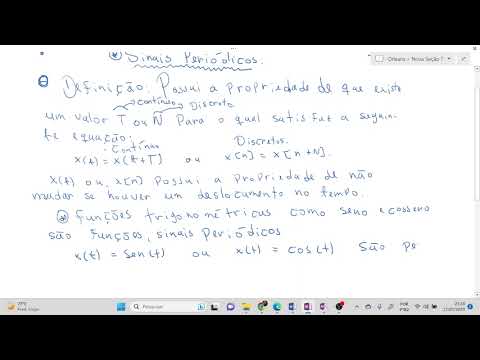 Sinais Periódicos.
Orleans > Nova Seção 1
Definição: Possui a propriedade de que existe
contínuo Discreto
um valor T ou N Para o qual satisfat a seguin-
te equação:
Contínuo Discretos.
x(t) = x(t+T) ou x[n] = x[n+N].
x(t) ou x[n] Possui a propriedade de não
mudar se houver um deslocamento no tempo.
Funções trigonométricas como seno e cosseno
são funções, sinais periódicos
x(t) = sen(t) ou x(t) = cos(t) são pe
Pesquisar
POR
PTB2